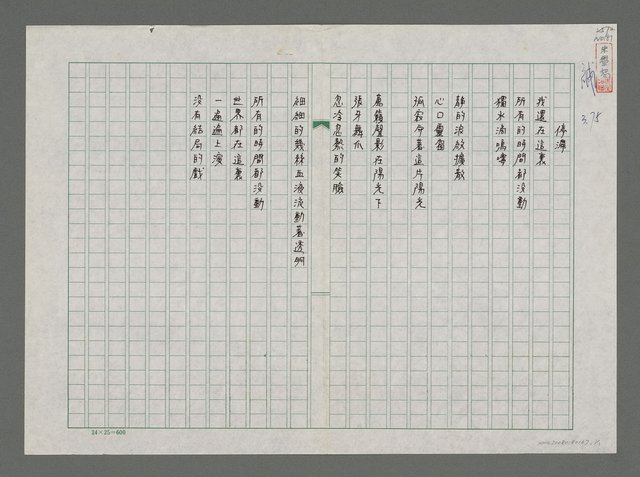 停滯
我還在這裏
所有的時間都沒動
獨水滴嗚嗚
靜的波紋擴散
心口
孤寂夺著這片陽光
萬籟聲影在陽光下
張牙舞爪
忽冷忽熱的笑臉
細細的幾絲血液流動著透明
所有的時間都沒動
世界都在這裏
一遍遍上演
沒有結局的戲
補
3.75
24×25=600